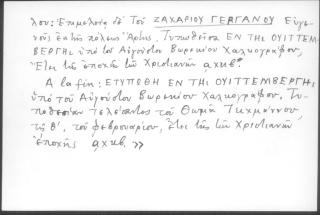 λου: Ἐπιμελείᾳ δὲ τοῦ ΖΑΧΑΡΙΟΥ ΓΕΡΓΑΝΟΥ Εὐγε-
νοῦς ἐκ τῆς πόλεως Ἄρτης. Τυπωθεῖσα ΕΝ ΤΗ ΟΥΙΤΤΕΜ-
ΒΕΡΓΗΣ ὑπὸ τοῦ Αὐγούστου Βωρεκίου Χαλκογράφου,
Ἔτει τῆς ἐποχῆς τῶν Χριστιανῶν αχκβ.
A la fin: ΕΤΥΠΩΘΗ ΕΝ ΤΗ ΟΥΙΤΤΕΜΒΕΡΓΗΣ,
ὑπὸ τοῦ Αὐγούστου Βωρεκίου Χαλκογράφου, Τυ-
ποθεσίαν τελείσαντος τοῦ Θωμᾶ
τῇ θ΄, τοῦ φεβρουαρίου, ἔτει τῆς τῶν Χριστιανῶν
ἐποχῆς αχκβ. »